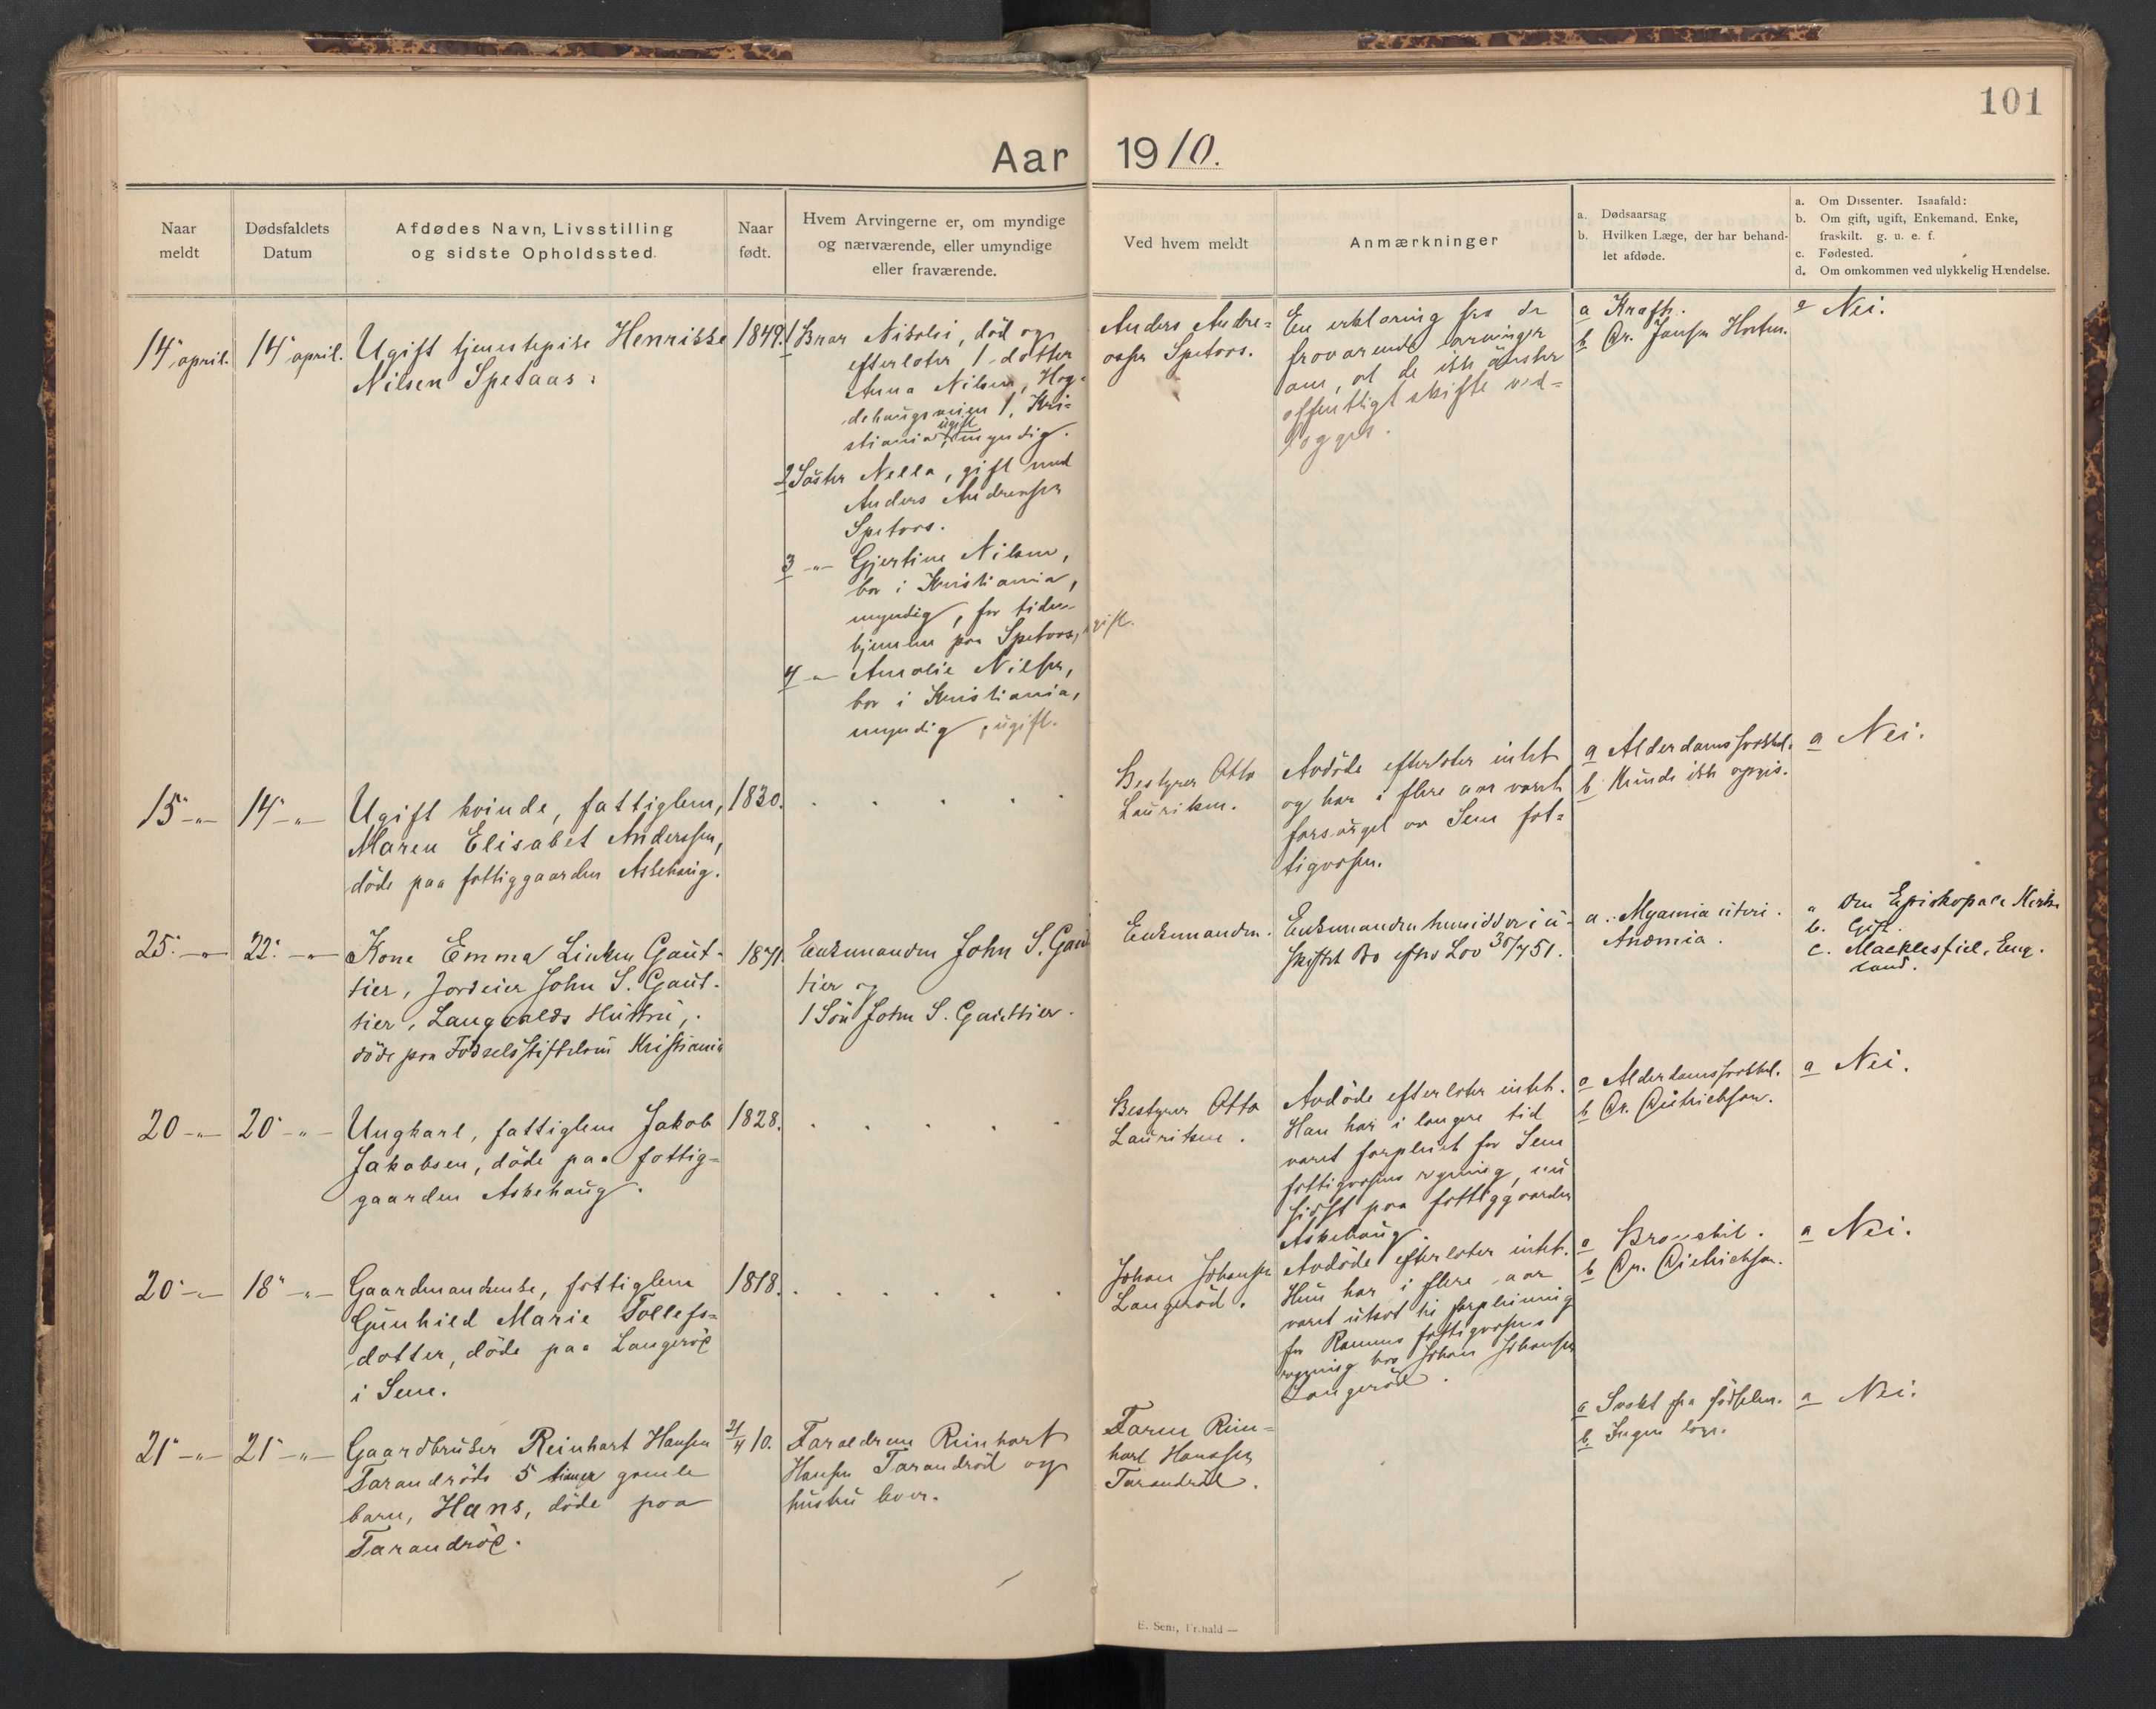 101
Aar 1910.
Naar
meldt
Dødsfaldets
Datum
Afdødes Navn, Livsstilling
og sidste Opholdssted.
Naar
født.
Hvem Arvingerne er, om myndige
og nærværende, eller umyndige
eller fraværende.
Ved hvem meldt
Anmærkninger
a. Dødsaarsag
b. Hvilken Læge, der har behand-
let afdøde.
a. Om Dissenter. Isaafald:
b. Om gift, ugift, Enkemand, Enke,
fraskilt. g. u. e. f.
c. Fødested.
d. Om omkommen ved ulykkelig Hændelse.
14 april.
14 april.
Ugift tjenestepike Henrikke
Nilsen Spetaas.
1849.
1 Bror Nikolai, död og
efterlater 1 datter
Anna Nilsen, Heg-
dehaugsveien 1, Kri-
stiania, ugift myndig.
2 Söster Nella, gift med
Anders Andreassen
Spetaas.
3 -"- Gjertine Nilsen,
bor i Kristiania,
myndig, for tiden
hjemme paa Spetaas, ugift.
4 -"- Amalie Nilsen,
bor i Kristiania,
myndig, ugift.
Anders Andre-
assen Spetaas.
En erklæring fra de
fraværende arvinger
om, at de ikke önsker
offentligt skifte ved-
lægges.
a Kræft.
b Dr. Jansen Horten.
a Nei.
15 -"-
14 -"-
Ugift kvinde, fattiglem,
Maren Elisabet Anderssen,
döde paa fattiggaarden Askehaug.
1830.
Bestyrer Otto
Lauritsen.
Avdöde efterlater intet
og har i flere aar været
forsörget av Sem fat-
tigvæsen.
a Alderdomssvakhet.
b Kunde ikke opgis.
a Nei.
25. -"-
22. -"-
Kone Emma Gaut-
tier, Jordeier John S. Gaut-
tier, Langvalds Hustru,
döde paa Fødselsstiftelsen Kristiania
1871
Enkemanden John S. Gaut
tier og
1 Sön John S. Gauttier.
Enkemanden.
Enkemanden hensidder i u-
skiftet Bo efter Lov 30/7 51.
a. Myomia uteri.
Anæmia.
a Den Episkopale Kirke
b. Gift.
c. Macklesfiel, Eng-
land.
20 -"-
20 -"-
Ungkarl, fattiglem Jakob
Jakobsen, döde paa fattig-
gaarden Askehaug.
1828.
Bestyrer Otto
Lauritsen.
Avdöde efterlater intet.
Han har i længere tid
været forpleiet for Sem
fattigvæsens regning, nu
sidst paa fattiggaarden
Askehaug.
a Alderdomssvakhet.
b Dr. Dietrichson.
a Nei.
20 -"-
18 -"-
Gaardmandsenke, fattiglem
Gunhild Marie Tollefs-
datter, döde paa Langeröd
i Sem.
1818.
Johan Johansen
Langeröd.
Avdöde efterlater intet.
Hun har i flere aar
været utsat til forpleining
for Ramnes fattigvæsens
regning hos Johan Johansen
Langeröd.
a Bronchit.
b Dr. Dietrichson.
a Nei.
21 -"-
21 -"-
Gaardbruker Reinhart Hansen
Tarandröds 5 timer gamle
barn, Hans, döde paa
Tarandröd.
21/4 10.
Foraldrene Reinhart
Hansen Tarandröd og
hustru lever.
Faren Rein-
hart Hanssen
Tarandröd.
a Svakt fra födselen.
b Ingen læge.
a Nei.
E. Sem, Fr.hald —